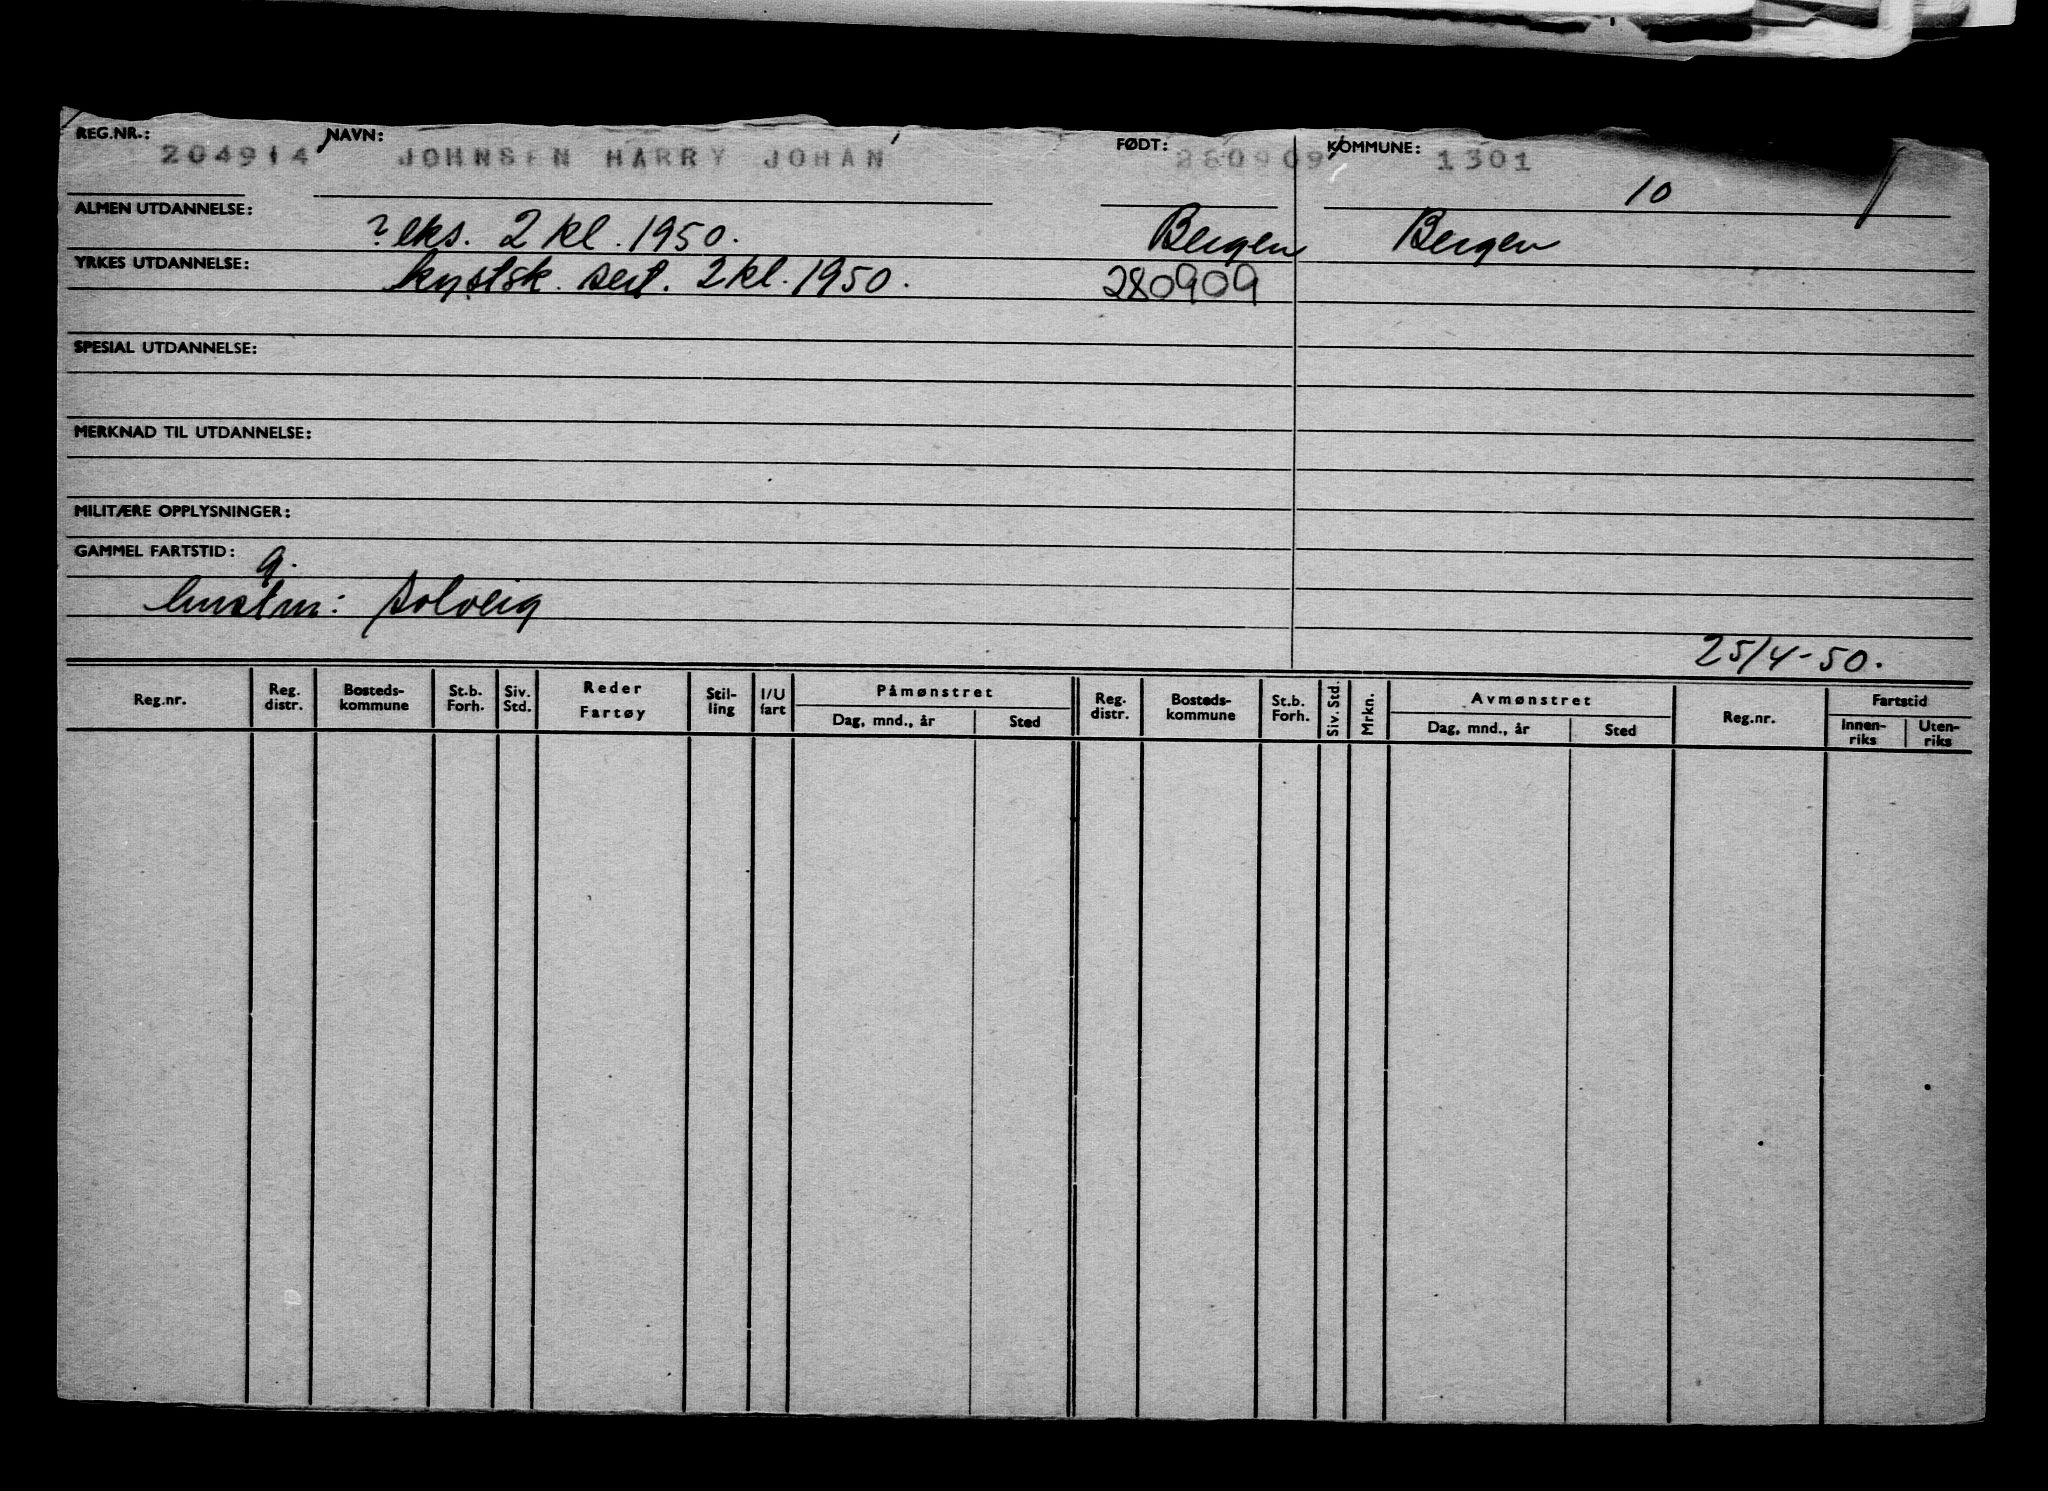 REG.NR.: 204914 NAVN: JOHNSEN HARRY JOHAN FØDT: 280909 KOMMUNE: 1301
10
ALMEN UTDANNELSE: ? eks. 2 kl. 1950. Bergen Bergen
YRKES UTDANNELSE: kystsk. sert. 2 kl. 1950. 280909
SPESIAL UTDANNELSE:
MERKNAD TIL UTDANNELSE:
MILITÆRE OPPLYSNINGER:
GAMMEL FARTSTID: g.
hustru: Solveig
25/4-50.
Reg.nr. Reg. distr. Bosteds-kommune St.b. Forh. Siv. Std. Reder Fartøy Stil-ling I/U fart Påmønstret Reg. distr. Bosteds-kommune St.b. Forh. Siv. Std. Mrkn. Avmønstret Reg.nr. Fartstid
Dag, mnd., år Sted Dag, mnd., år Sted Innen-riks Uten-riks